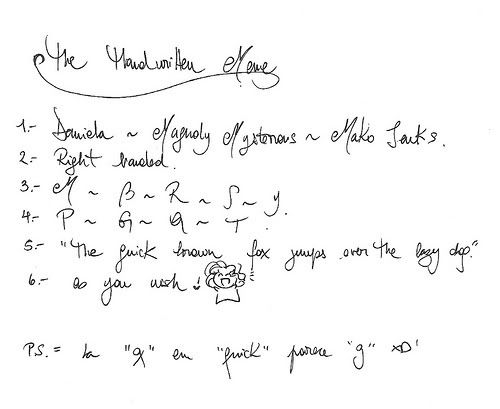 The Handwritten Meme
1.- Daniela ~ Magnoly Mysterious ~ Mako Jenks.
2.- Right handed.
3.- M ~ β ~ R ~ S ~ y.
4.- P ~ G ~ Q ~ T.
5.- "The quick brown fox jumps over the lazy dog."
6.- as you wish ;
P.S. = La "Q" en "quick" parece "g" xD!